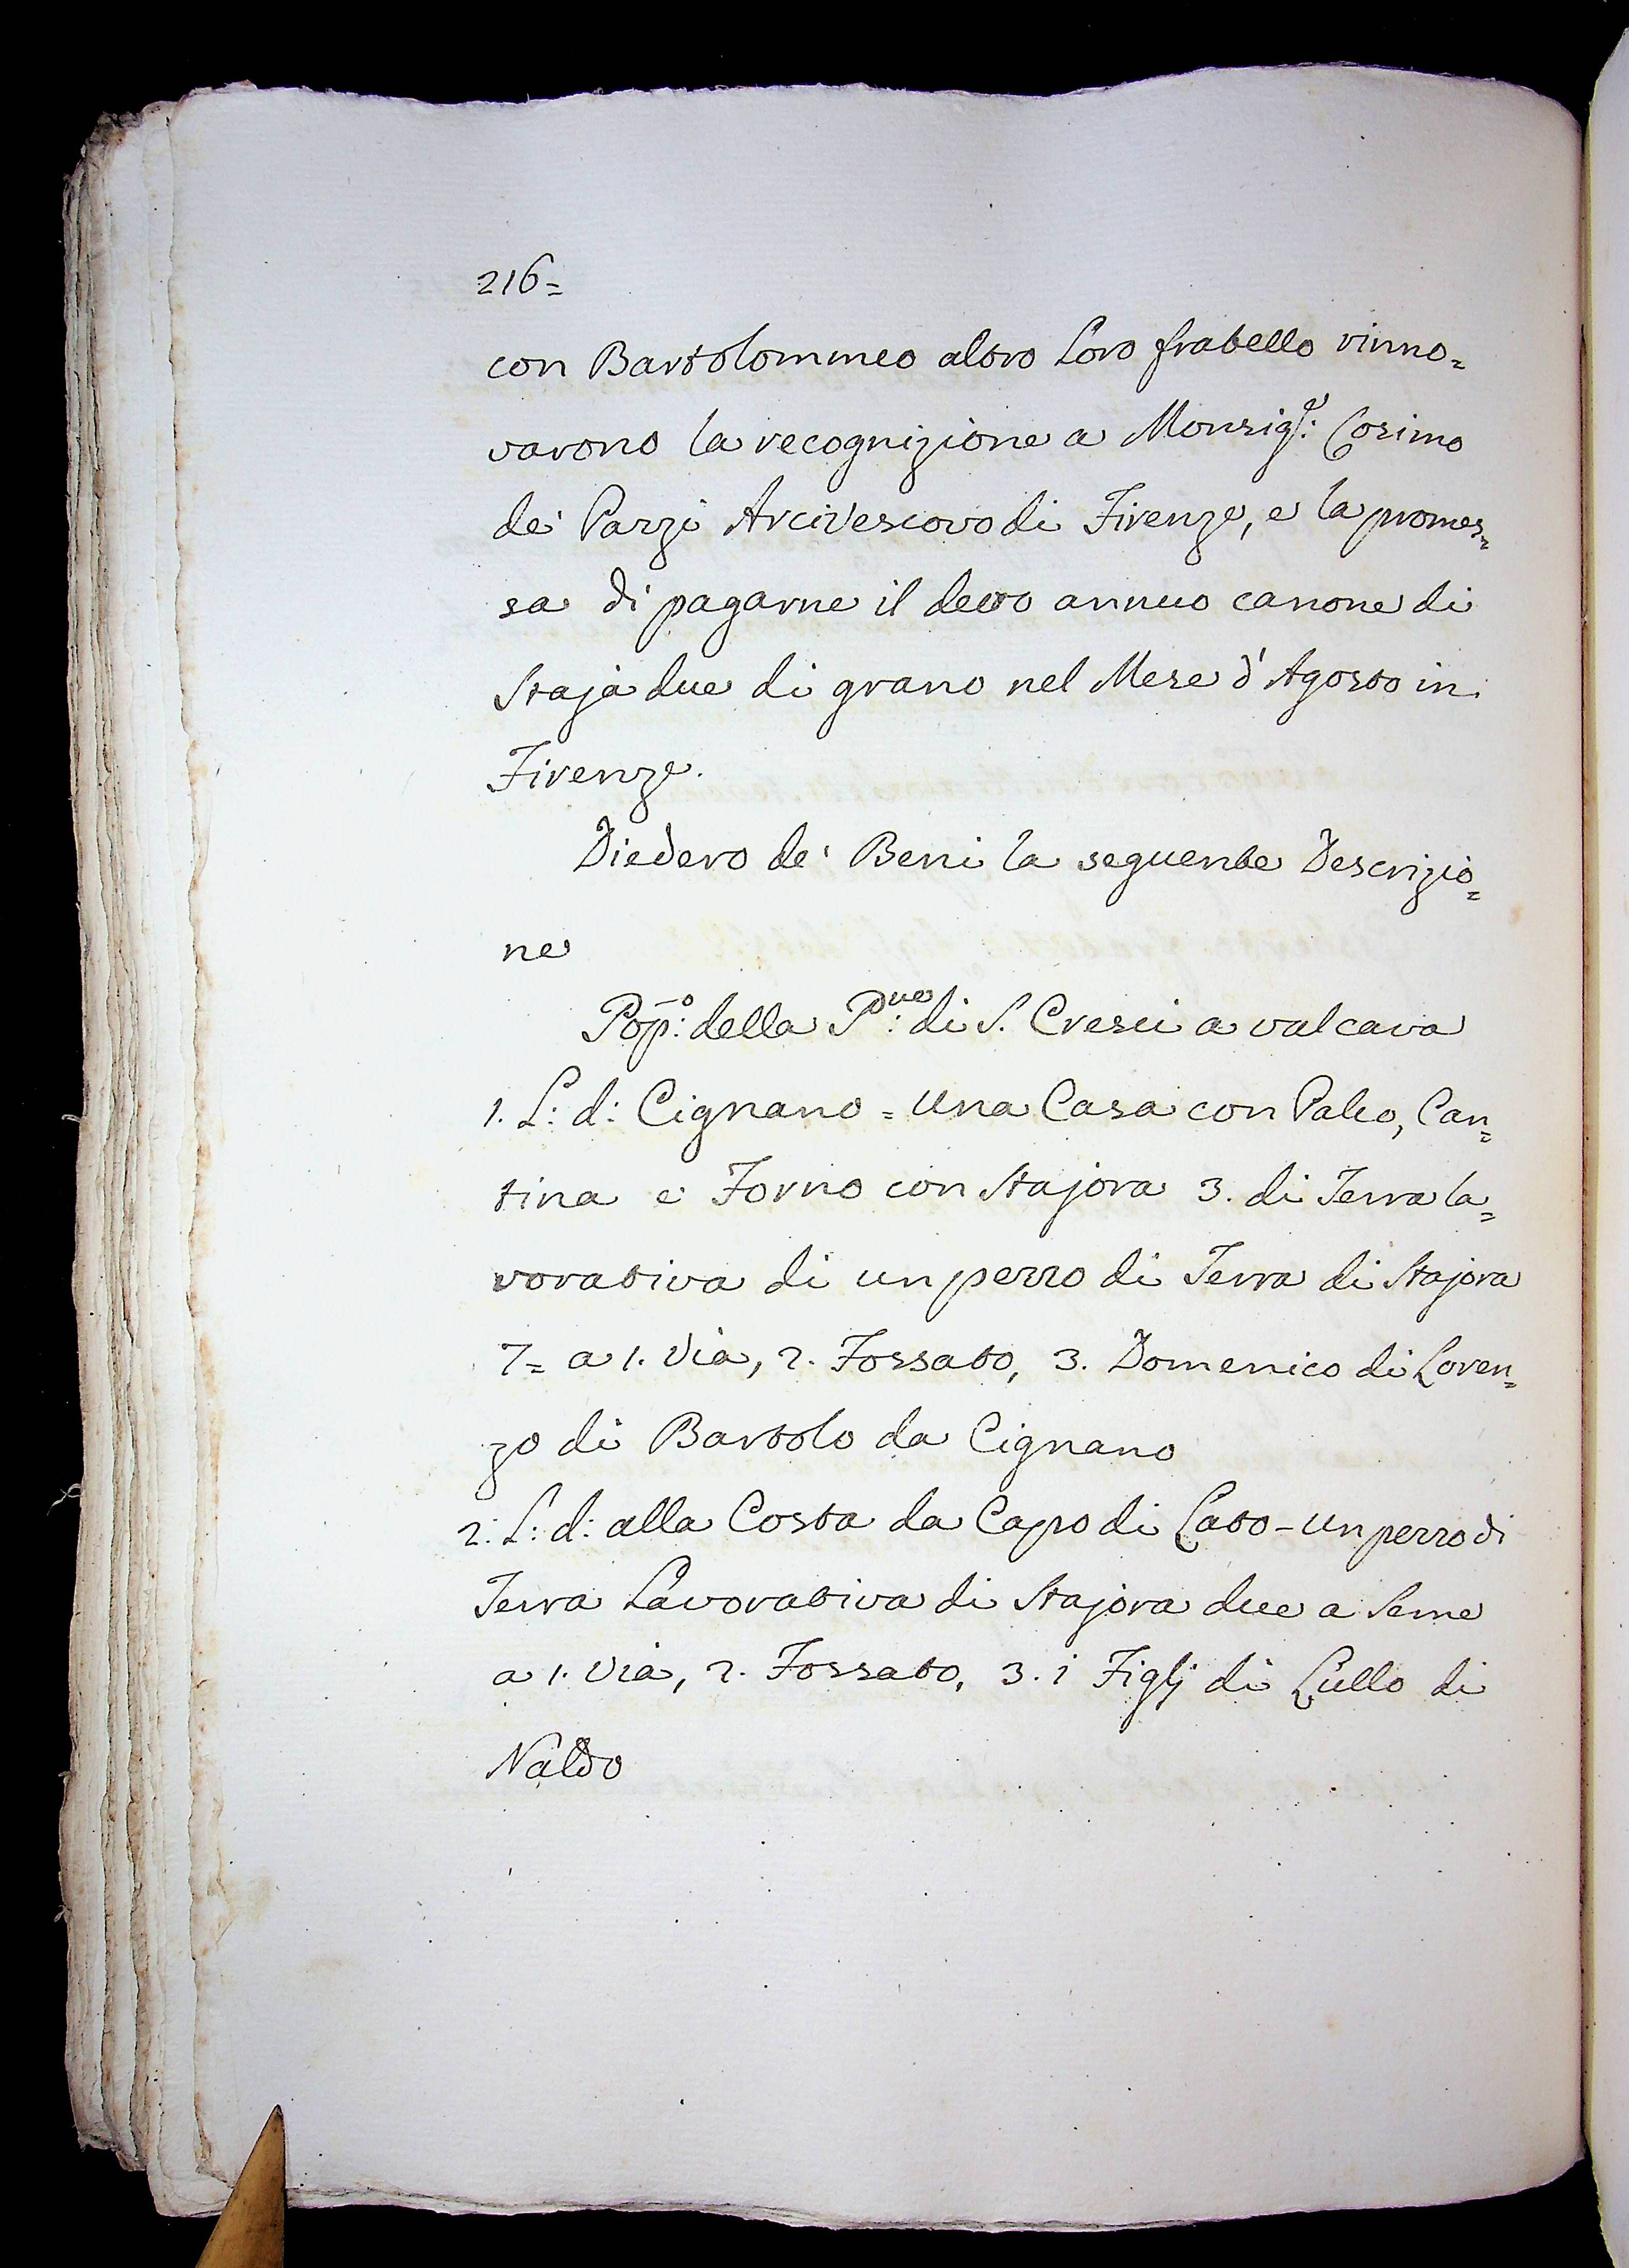 216=
con Bartolommeo altro Loro fratello rinno=
varono la recognizione a Monsig.e: Cosimo
de' Pazzi Arcivescovo di Firenze, e la promes=
sa di pagarne il detto annuo canone di
Staja due di grano nel Mese d'Agosto in
Firenze.
Diedero de' Beni la seguente Descrizio=
ne
Pop:o della P:ve di S. Cresci a valcava
1. L: d: Cignano = una Casa con Palco, Can=
tina e Forno con Stajora 3. di Terra la=
vorativa di un pezzo di Terra di Stajora
7= a 1. Via, 2. Fossato, 3. Domenico di Loren=
zo di Bartolo da Cignano
2: L: d: alla Costa da Capo di Lato - un pezzo di
Terra Lavorativa di Stajora due a Seme
a 1. Via, 2. Fossato, 3. i Figlj di Lullo di
Naldo